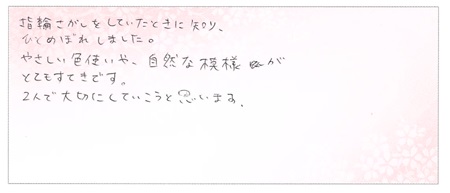 指輪さがしをしていたときに知り、
ひとめぼれしました。
やさしい色使いや、自然な模様が
とてもすてきです。
2人で大切にしていこうと思います。